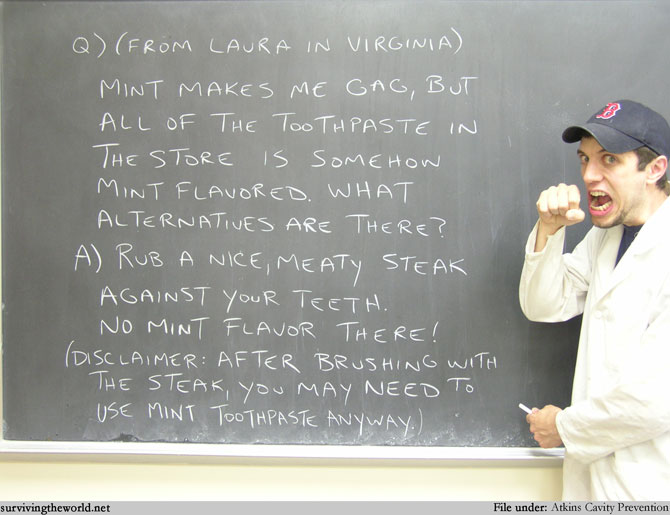 Q) (FROM LAURA IN VIRGINIA)
MINT MAKES ME GAG, BUT
ALL OF THE TOOTHPASTE IN
THE STORE IS SOMEHOW
MINT FLAVORED. WHAT
ALTERNATIVES ARE THERE?
A) RUB A NICE, MEATY STEAK
AGAINST YOUR TEETH.
NO MINT FLAVOR THERE!
(DISCLAIMER: AFTER BRUSHING WITH
THE STEAK, YOU MAY NEED TO
USE MINT TOOTHPASTE ANYWAY.)
B
survivingtheworld.net
File under: Atkins Cavity Prevention